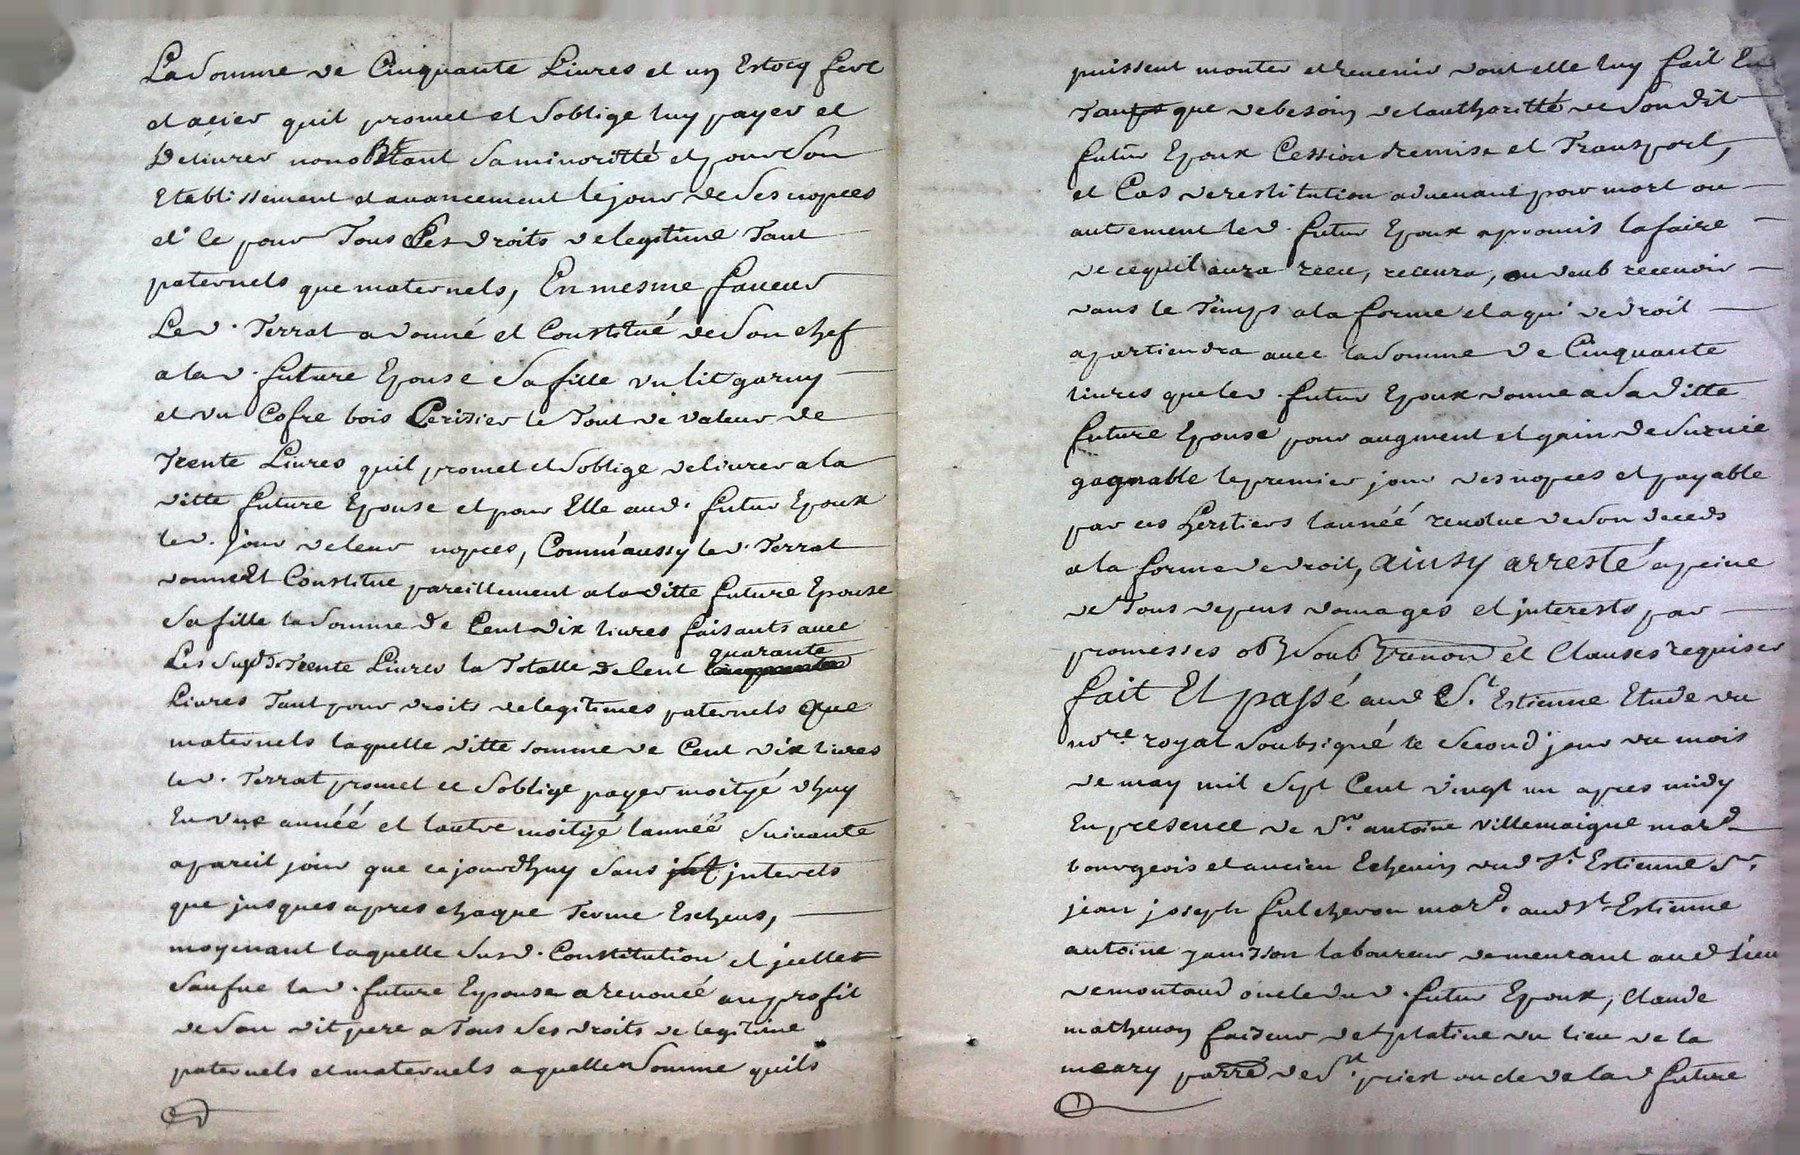 La Somme de Cinquante Livres et un Estocq fere
et acier quil promet et Soblige luy payer et
Delivrer nonobstant Sa minoritté et pour Son
Etablissement et avancement le jour de Ses nopces
et Ce pour Tous Ces droits de legitime Tant
paternels que maternels, En mesme faveur
Le d. Terrat a donné et Constitué de Son chef
a la d. future Epouse Sa fille un lit garny
et un Cofre bois Cerisier le Tout de valeur de
Trente Livres quil promet et Soblige delivrer a la
ditte future Epouse et pour Elle aud. futur Epoux
le d. jour de leur nopces, Comm'aussy le d. Terrat
donne Et Constitue pareillement a la ditte future Epouse
Sa fille la Somme de Cent dix livres faisants avec
Les Susd. Trente Livres la Totalle de Cent quarante
Livres Tant pour droits de legitimes paternels que
maternels laquelle ditte somme de Cent dix livres
le d. Terrat promet et Soblige payer moityé dhuy
En une année et lautre moityé lannéé Suivante
a pareil jour que ce jourdhuy Sans interets
que jusques apres chaque Terme Escheus,
moyenant laquelle Susd. Constitution et jcelle
Sauf ue la d. future Epouse a renoncé au profit
de Son dit pere a Tous Ses droits de legitime
paternels et maternels a quelle Somme quils
puissent monter et revenir dont elle luy fait En
Tant que de besoin de lauthoritté de Son dit
futur Epoux Cession remise et Transport,
et Cas de restitution advenant pour mort ou
autrement le d. futur Epoux a promis la faire
de ce quil aura receu, recevra, ou deub recevoir
dans le Temps a la forme et a qui de droit
apartiendra avec la Somme de Cinquante
livres que le d. futur Epoux donne a Sa ditte
future Epouse pour augment et gain de Survie
gagnable le premier jour des nopces et payable
par ces heritiers lannéé revolue de Son deceds
a la forme de droit, ainsy arresté a peine
de Tous depens domages et jnterests par
promesses ob Soub renon et Clauses requises
fait Et passé aud St. Estienne Etude du
nore. royal Soubsigné le Second jour du mois
de may mil Sept Cent vingt un apres midy
En presence de Sr. antoine villemaigne mard.
bourgeois et ancien Echevin dud St. Estienne Sr.
jean joseph fulcheron mard. aud St Estienne
antoine janisson laboureur demeurant aud Lieu
de montaud oncle dud. futur Epoux, Claude
mathevon faiseur de platine du lieu de la
meary parre de St. priest oncle de la d future